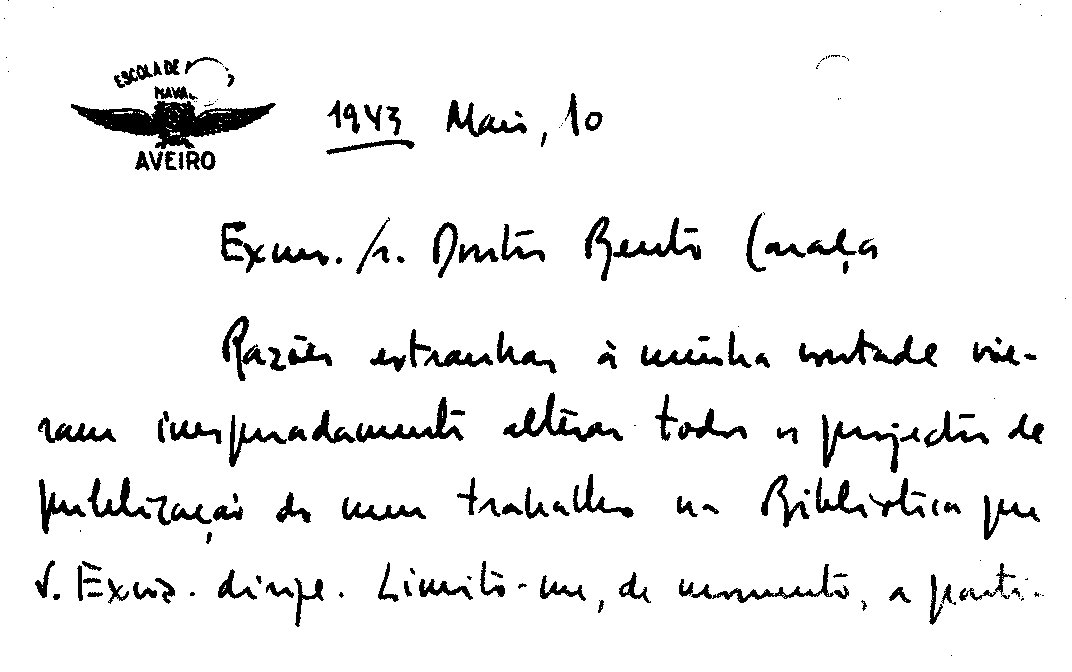 ESCOLA DE
NAVAL
AVEIRO
1943 Maio, 10
Exmo. Sr. Doutor Bento Caraça
Razões estranhas à minha vontade vie-
ram inesperadamente alterar todos os projectos de
publicação do meu trabalho na Biblioteca que
V. Exciª. dirige. Limito-me, de momento, a parti-